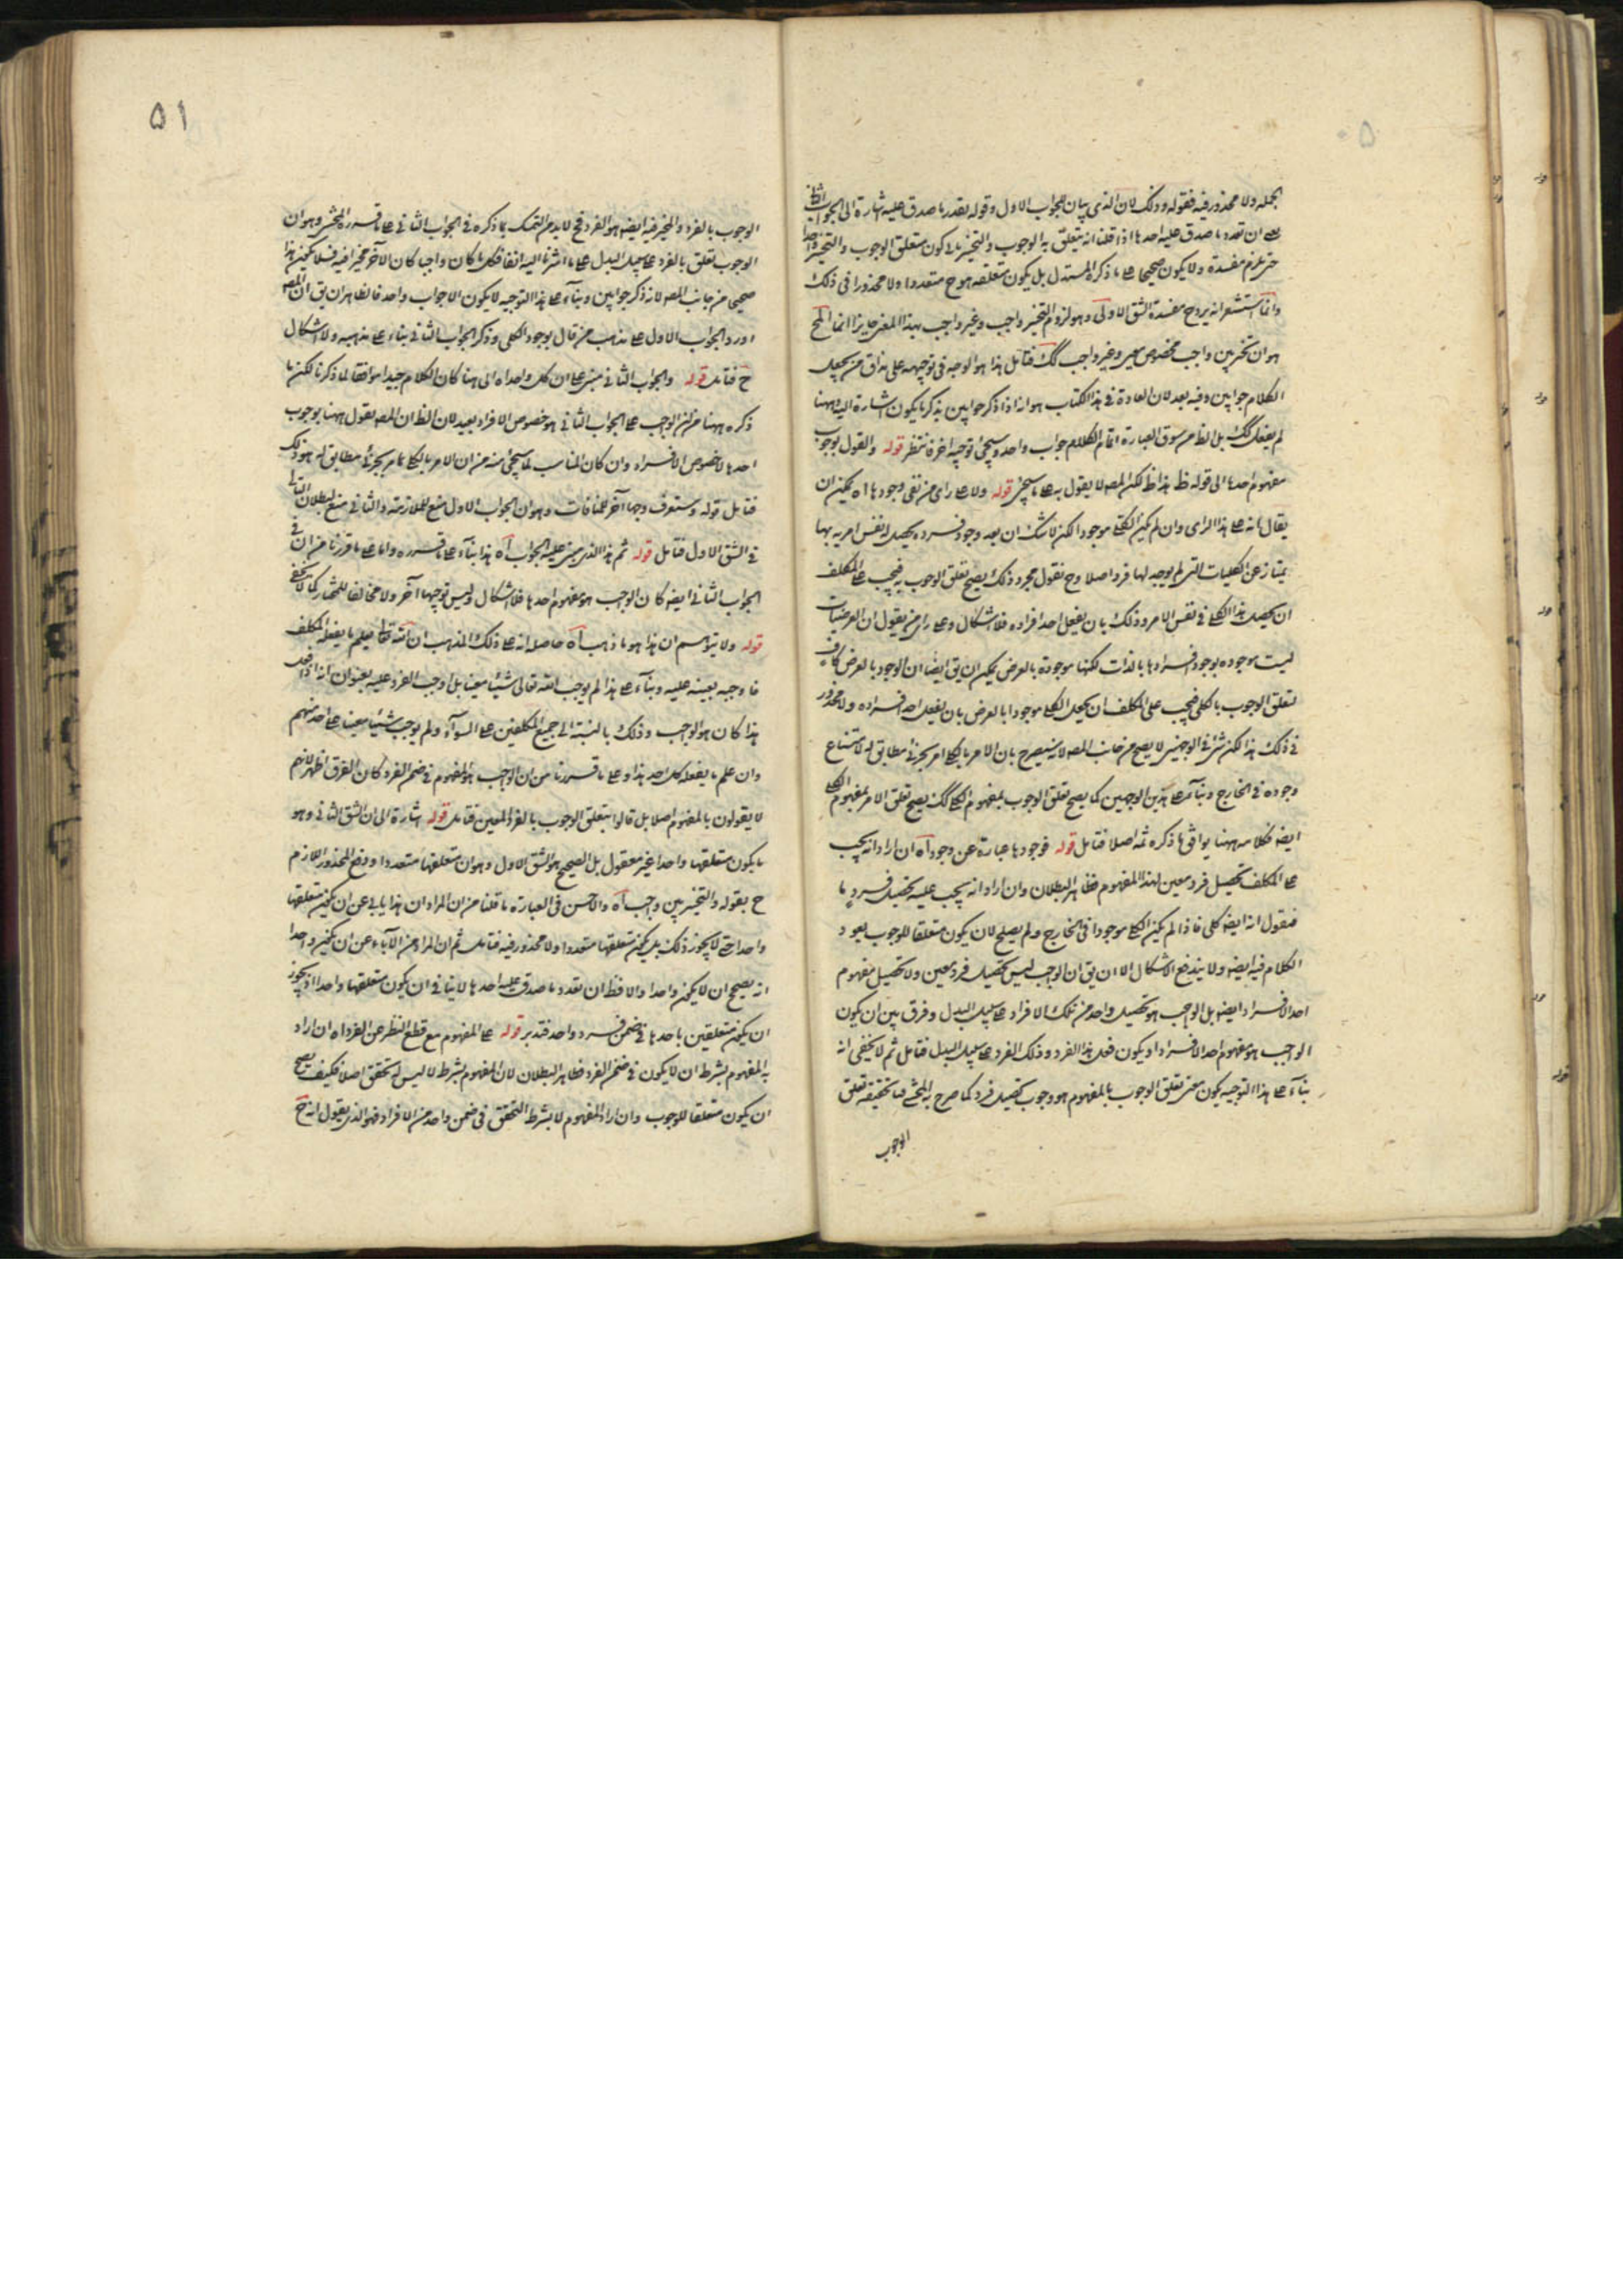 ٥٠
الجمله ولا محذور فيه فقوله وذلك لان الذى بيان للجواب الاول وقوله بتعدد ما صدق عليه اشارة الى الجواب الثانى
ان تعدد ما صدق عليه احدها اذا قلنا انه يتعلق به الوجوب والتخيير يكون متعلق الوجوب والتخيير واحدا
مفسدة ولا يكون صحيحا على ما ذكره المستدل بل يكون متعلقه متعددا ولا محذور فى ذلك
وانما استشعر انه يرد ح مفسدة الشق الاولى وهو لزوم التخيير واجب وغير واجب بهذا المعنى جايز انما المح
هو ان تخير بين واجب مخصوص معين وغير واجب كك فتامل هذا هو الوجه فى توجيهه على مذاق من يجعل
الكلام جوابين وفيه بعد لان العادة فى هذا الكتاب هو انه اذا ذكر جوابين يذكر ما يكون اشارة اليه وههنا
لم يفعل كك بل الظ من سوق العبارة اتمام الكلام جواب واحد وسيجئ توجيه اخر فانتظر قوله والقول بوجوب
مفهوم احدها الى قوله ظ هذا ظ لكن المص لا يقول به على ما سيجئ قوله ولا على راى من نفى وجودها اه يمكن ان
يقال انه على هذا الراى وان لم يكن الكلى موجودا لكن لا شك ان بعد وجود فرده يحصل له نفس امرية بها
يمتاز عن الكليات التى لم يوجد لها فرد اصلا وح نقول بمجرد ذلك يصح تعلق الوجوب به فيجب على المكلف
ان يحصل هذا الكلى فى نفس الامر وذلك بان يفعل احد افراده فلا اشكال وعلى راى من يقول ان العرضيات
ليست موجودة بوجود افرادها بالذات لكنها موجودة بالعرض يمكن ان يق ايضا ان الوجود بالعرض كاف
لتعلق الوجوب بالكلى فيجب على المكلف ان يجعل الكلى موجودا بالعرض بان يفعل احد افراده ولا محذور
فى ذلك هذا لكن شئ فى الوجهين لا يصح من جانب المص لانه سيصرح بان الامر بالكلى امر بجزئى مطابق له لامتناع
وجوده فى الخارج وبناء على هذين الوجهين كما يصح تعلق الوجوب بمفهوم الكلى كك يصح تعلق الامر بمفهوم الكلى
ايضه فكلامه ههنا يوافق ما ذكره ثمه اصلا فتامل قوله فوجودها عبارة عن وجود اه ان اراد انه يجب
على المكلف تحصيل فرد معين لهذا المفهوم فظاهر البطلان وان اراد انه يجب عليه تحصيل فرد ما
فنقول انه ايضه كلى فاذا لم يكن الكلى موجودا فى الخارج ولم يصلح لان يكون متعلقا للوجوب يعود
الكلام فيه ايضه ولا يندفع الاشكال الا ان يق ان الواجب ليس تحصيل فرد معين ولا تحصيل مفهوم
احد الافراد ايضه بل الواجب هو تحصيل واحد من تلك الافراد على سبيل البدل وفرق بين ان يكون
الواجب هو مفهوم احد الافراد او يكون فعل هذا الفرد وذلك الفرد على سبيل البدل فتامل ثم لا يخفى انه
بناء على هذا التوجيه يكون معنى تعلق الوجوب بالمفهوم هو وجوب تحصيل فرد كما صرح به المحشى فبالحقيقة تعلق
الوجوب
٥١
الوجوب بالفرد والمخير فيه ايضه هو الفرد فح لا بد من التمسك بما ذكره فى الجواب الثانى على ما قرره المحشى وهو ان
الوجوب تعلق بالفرد على سبيل البدل على ما اشرنا اليه انفا فكل ما كان واجبا كان الآخر مخيرا فيه فلا يمكن هذا
صحيحا من جانب المص لانه ذكر جوابين وبناء على هذا التوجيه لا يكون الا جواب واحد فالظاهر ان يق ان المص
اورد الجواب الاول على مذهب من قال بوجود الكلى وذكر الجواب الثانى بناء على مذهبه ولا اشكال
ح فتامل قوله والجواب الثانى مبنى على ان كل واحد اه الى هنا كان الكلام جيدا موافقا لما ذكرنا لكن ما
ذكره ههنا من ان الواجب على الجواب الثانى هو خصوص الافراد بعيد لان الظ ان المص يقول ههنا بوجوب
احدها لا خصوص الافراد وان كان المناسب لما سيجئ منه من ان الامر بالكلى امر بجزئى مطابق له هو ذلك
فتامل قوله وستعرف وجها آخر للمنافات وهو ان الجواب الاول منع للملازمة والثانى منع لبطلان التالى
فى الشق الاول فتامل قوله ثم هذا الذى مبنى عليه الجواب اه هذا بناء على ما قرره واما على ما قررنا من ان فى
الجواب الثانى ايضه كان الواجب هو مفهوم احدها فلا اشكال وليس توجيها آخر ولا مخالفا للمختار كما لا يخفى
قوله ولا يتوهم ان هذا هو ما ذهب اه حاصله انه على ذلك المذهب ان الله تعالى يعلم ما يفعله المكلف
فاوجبه بعينه عليه وبناء على هذا لم يوجب الله تعالى شيئا معينا بل اوجب الفرد عليه بعنوان انه اذا فعل
هذا كان هو الواجب وذلك بالنسبة الى جميع المكلفين على السواء ولم يوجب شيئا معينا على احد منهم
وان علم ما يفعله كل احد هذا وعلى ما قررنا من ان الواجب هو المفهوم فى ضمن الفرد كان الفرق اظهر لانهم
لا يقولون بالمفهوم اصلا بل قالوا بتعلق الوجوب بالفرد المعين فتامل قوله اشارة الى ان الشق الثانى وهو
ما يكون متعلقها واحدا غير معقول بل الصحيح هو الشق الاول وهو ان متعلقها متعددا ودفع المحذور اللازم
ح بقوله والتخيير بين واجب اه والاحسن فى العبارة ما قلنا من ان المراد ان هذا يابى عن ان يكون متعلقها
واحدا حتى لا يجوز ذلك بل يمكن متعلقها متعددا ولا محذور فيه فتامل ثم ان المراد من الآباء عن ان يكون واحدا
انه يصح ان لا يكون واحدا والا فظ ان تعدد ما صدق عليه احدها لا ينافى ان يكون متعلقها واحدا اذ يجوز
ان يكون متعلقين باحدها فى ضمن فرد واحد فتدبر قوله على المفهوم مع قطع النظر عن الفرد اه ان اراد
به المفهوم بشرط ان لا يكون فى ضمن الفرد فظاهر البطلان لان المفهوم بشرط لا ليس له تحقق اصلا فكيف يصح
ان يكون متعلقا للوجوب وان اراد المفهوم لا بشرط التحقق فى ضمن واحد من الافراد فهو الذى يقول انه ح